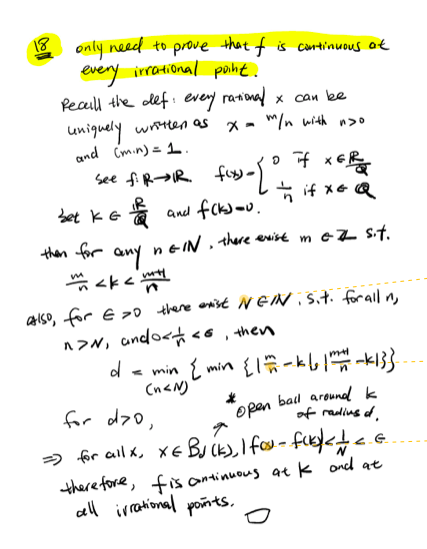 18 only need to prove that f is continuous at
every irrational point.
Recall the def: every rational x can be
uniquely written as x = m/n with n>0
and (m,n)=1.
see f: R→R. f(x)={ 0 if x∈R/Q
1/n if x∈Q
Set k∈ R/Q and f(k)=0.
then for any n∈IN, there exist m∈Z s.t.
m/n <k< m+1/n
also, for ε>0 there exist N∈IN, s.t. for all n,
n>N, and 0<1/n<ε, then
d = min { min {|m/n -k|, |m+1/n -k|}}
(n<N)
* open ball around k
of radius d.
for d>0,
⇒ for all x, x∈Bd(k), |f(x)-f(k)|<1/N<ε
therefore, f is continuous at k and at
all irrational points.